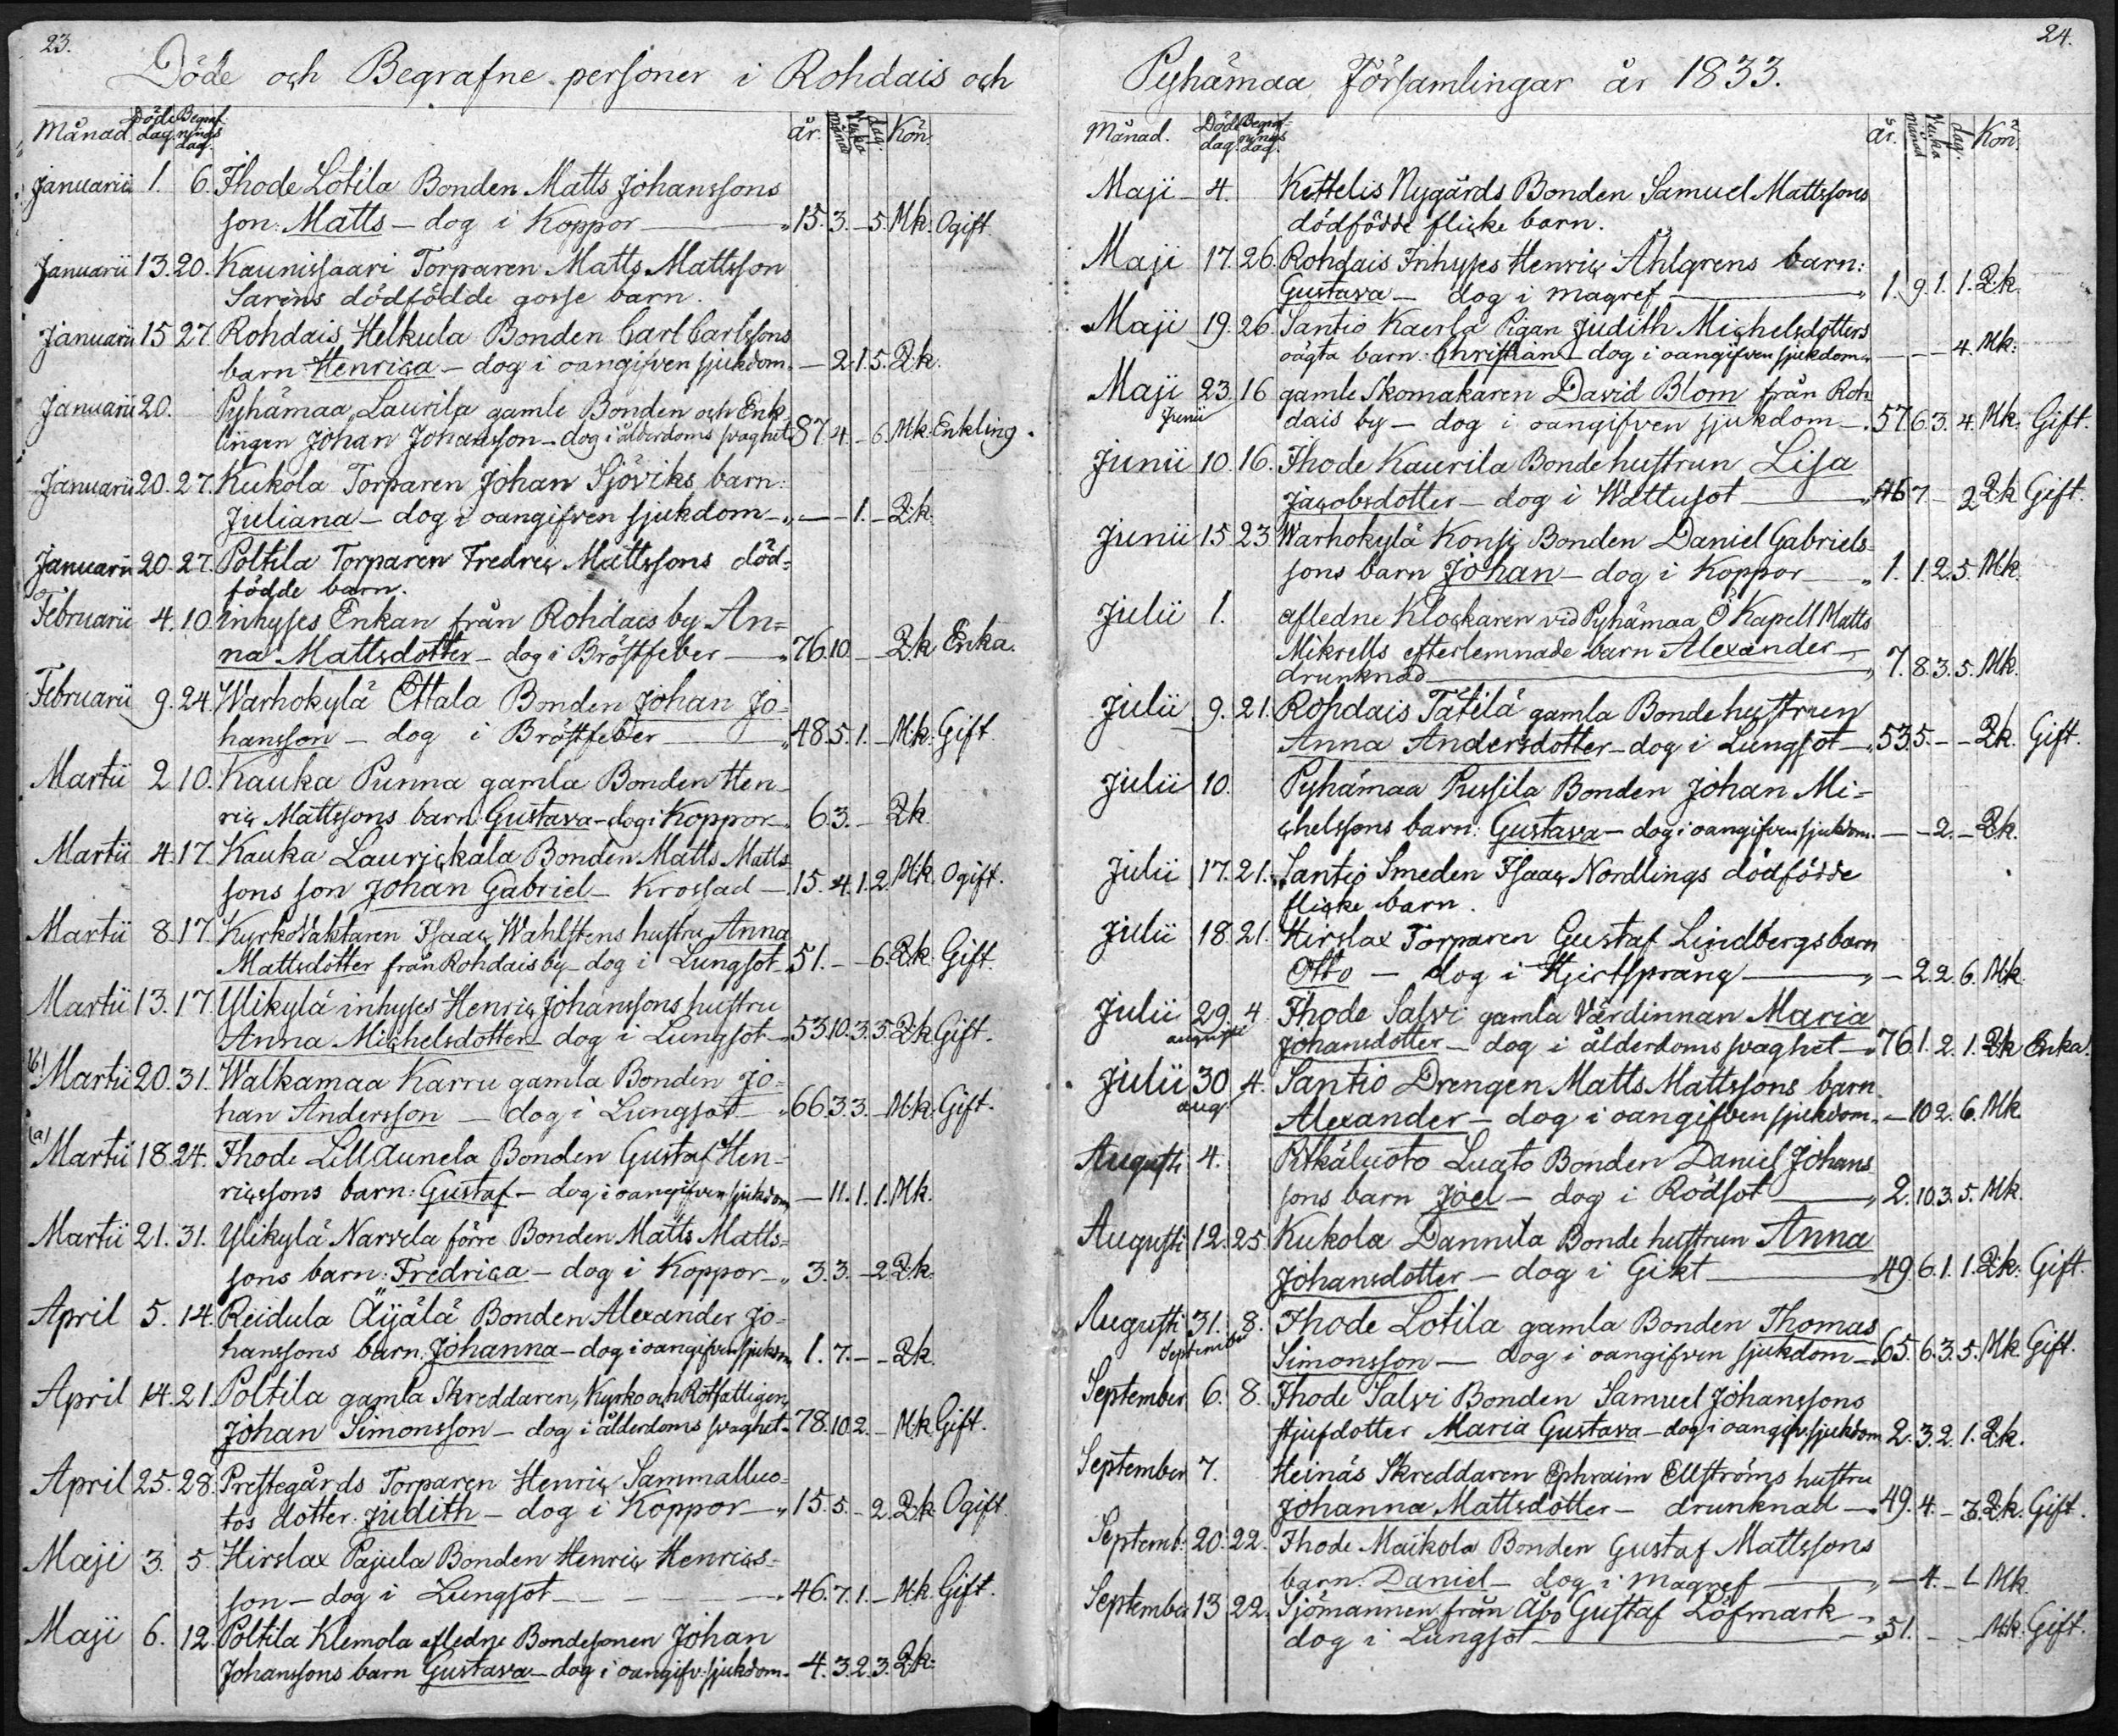 23.
Döde och Begrafne personer i Rohdais och
Månad. Döde dag. Begrafnings dag. år. månad Veika dag. Kön.
Januarii 1. 6. Ihode Lotila Bonden Matts Johanssons
son: Matts — dog i Koppor — 15. 3. — 5. Mk. Ogift
Januarii 13. 20. Kaunissaari Torparen Matts Mattsson
Sarins dödfödde gosse barn.
Januarii 15 27 Rohdais Helkula Bonden Carl Carlssons
barn Henrica — dog i oangifven sjukdom. — 2. 1. 5. Qk.
Januarii 20. Pyhämaa Laurila gamle Bonden och Enk
lingen Johan Johansson — dog i ålderdoms svaghet 87. 4. — 6. Mk. Enkling.
Januarii 20. 27. Kukola Torparen Johan Sjöviks barn:
Juliana — dog i oangifven sjukdom — „ — — 1. — Qk.
Januarii 20. 27. Poltila Torparen Fredric Mattssons död-
födde barn.
Februarii 4. 10. Inhyses Enkan från Rohdais by An=
na Mattsdotter — dog i Bröstfeber — 76. 10. — Qk Enka.
Februarii 9. 24. Warhokylä Ettala Bonden Johan Jo-
hansson — dog i Bröstfeber — 48. 5. 1. — Mk. Gift
Martii 2 10. Kauka Punna gamla Bonden Hen-
ric Mattssons barn Gustava — dog i Koppor — 6. 3. — Qk.
Martii 4. 17. Kauka Laurickala Bonden Matts Matts
sons son Johan Gabriel — Krossad — 15. 4. 1. 2. Mk. Ogift.
Martii 8. 17. Kyrkovaktaren Isaac Wahlstens hustru Anna
Mattsdotter från Rohdais by — dog i Lungsot. 51. — — 6. Qk. Gift.
Martii 13. 17. Ylikylä inhyses Henric Johanssons hustru
Anna Michelsdotter — dog i Lungsot — 53. 10. 3. 5. Qk Gift.
(b) Martii 20. 31. Walkamaa Karru gamla Bonden Jo=
han Andersson — dog i Lungsot — 66. 3. 3. — Mk. Gift.
(a) Martii 18. 24. Ihode Lill Aunela Bonden Gustaf Hen-
ricssons barn: Gustaf — dog i oangifven sjukdom — 11. 1. 1. Mk.
Martii 21. 31. Ylikylä Narvila förre Bonden Matts Matts=
sons barn: Fredrica — dog i Koppor — „ 3. 3. — 2 Qk.
April 5. 14. Reidula Äijälä Bonden Alexander Jo-
hanssons barn. Johanna — dog i oangifven sjukdom 1. 7. — — Qk.
April 14. 21. Poltila gamla Skreddaren, Kyrko och Rotfattigen
Johan Simonsson — dog i ålderdoms svaghet. 78. 10. 2. — Mk Gift.
April 25. 28. Prestegårds Torparen Henric Sammalluo=
tos dotter. Judith — dog i Koppor — „ 15. 5. — 2. Qk Ogift
Maji 3. 5. Hirslax Pajula Bonden Henric Henrics-
son — dog i Lungsot — — — — 46. 7. 1. — Mk Gift.
Maji 6. 12. Poltila Klemola afledne Bondesonen Johan
Johanssons barn Gustava — dog i oangifv: sjukdom. 4. 3. 2. 3. Qk.
24.
Pyhämaa Församlingar år 1833.
Månad. Döde dag. Begrafnings dag. år. månad Veika dag. Kön.
Maji — 4. Kettelis Nygårds Bonden Samuel Mattssons
dödfödde flicke barn.
Maji 17. 26. Rohdais Inhyses Henric Åhlgrens barn:
Gustava — dog i magref — „ 1. 9. 1. 1. Qk.
Maji 19. 26. Santio Kaerla Pigan Judith Michelsdotters
oägta barn: Christian — dog i oangifven sjukdom. — — — 4. Mk.
Maji 23. 16 gamle Skomakaren David Blom från Roh
Junii dais by — dog i oangifven sjukdom — 57. 6. 3. 4. Mk. Gift.
Junii 10. 16. Ihode Kaurila Bonde hustrun Lisa
Jacobsdotter — dog i Wattusot — 46 7 — 2 Qk Gift.
Junii 15 23 Warhokylä Konsi Bonden Daniel Gabriels=
sons barn Johan — dog i Koppor — „ 1. 1 2. 5. Mk.
Julii 1. afledne Klockaren vid Pyhämaa Ö Kapell Matts
Mikrells efterlemnade barn Alexander —
drunknad — „ 7. 8. 3. 5. Mk.
Julii 9. 21. Rohdais Tätilä gamla Bonde hustrun
Anna Andersdotter — dog i Lungsot — 53. 5. — — Qk. Gift.
Julii 10. Pyhämaa Pussila Bonden Johan Mi=
chelssons barn: Gustava — dog i oangifven sjukdom. — — 2. — Qk.
Julii 17. 21. Santio Smeden Isaac Nordlings dödfödde
flicke barn.
Julii 18. 21. Hirslax Torparen Gustaf Lindbergs barn
Otto — dog i Hjertsprång — „ — 2. 2. 6. Mk.
Julii 29. 4. Ihode Salvi gamla Värdinnan Maria
augusti Johansdotter — dog i ålderdoms svaghet — 76 1. 2. 1. Qk Enka.
Julii 30 4. Santio Drengen Matts Mattssons barn.
aug. Alexander — dog i oangifven sjukdom. — 10 2. 6. Mk
Augusti 4. Pitkäluoto Luoto Bonden Daniel Johans
sons barn Joel — dog i Rödsot — „ 2. 10. 3. 5. Mk.
Augusti 12. 25 Kukola Dannila Bonde hustrun Anna
Johansdotter — dog i Gikt — 49 6. 1. 1. Qk. Gift.
Augusti 31. 8. Ihode Lotila gamla Bonden Thomas
September Simonsson — dog i oangifven sjukdom — 65. 6. 3. 5. Mk Gift.
September 6. 8. Ihode Salvi Bonden Samuel Johanssons
stjufdotter Maria Gustava — dog i oangifv: sjukdom 2. 3. 2. 1. Qk.
September 7. Heinäs Skreddaren Ephraim Ellströms hustru
Johanna Mattsdotter — drunknad — 49. 4. — 3. Qk. Gift.
Septemb: 20. 22. Ihode Maikola Bonden Gustaf Mattssons
barn. Daniel — dog i magref — „ — 4. — 1 Mk.
September 13 22. Sjömannen från Åbo Gustaf Löfmark —
dog i Lungsot — 51. — — Mk. Gift.